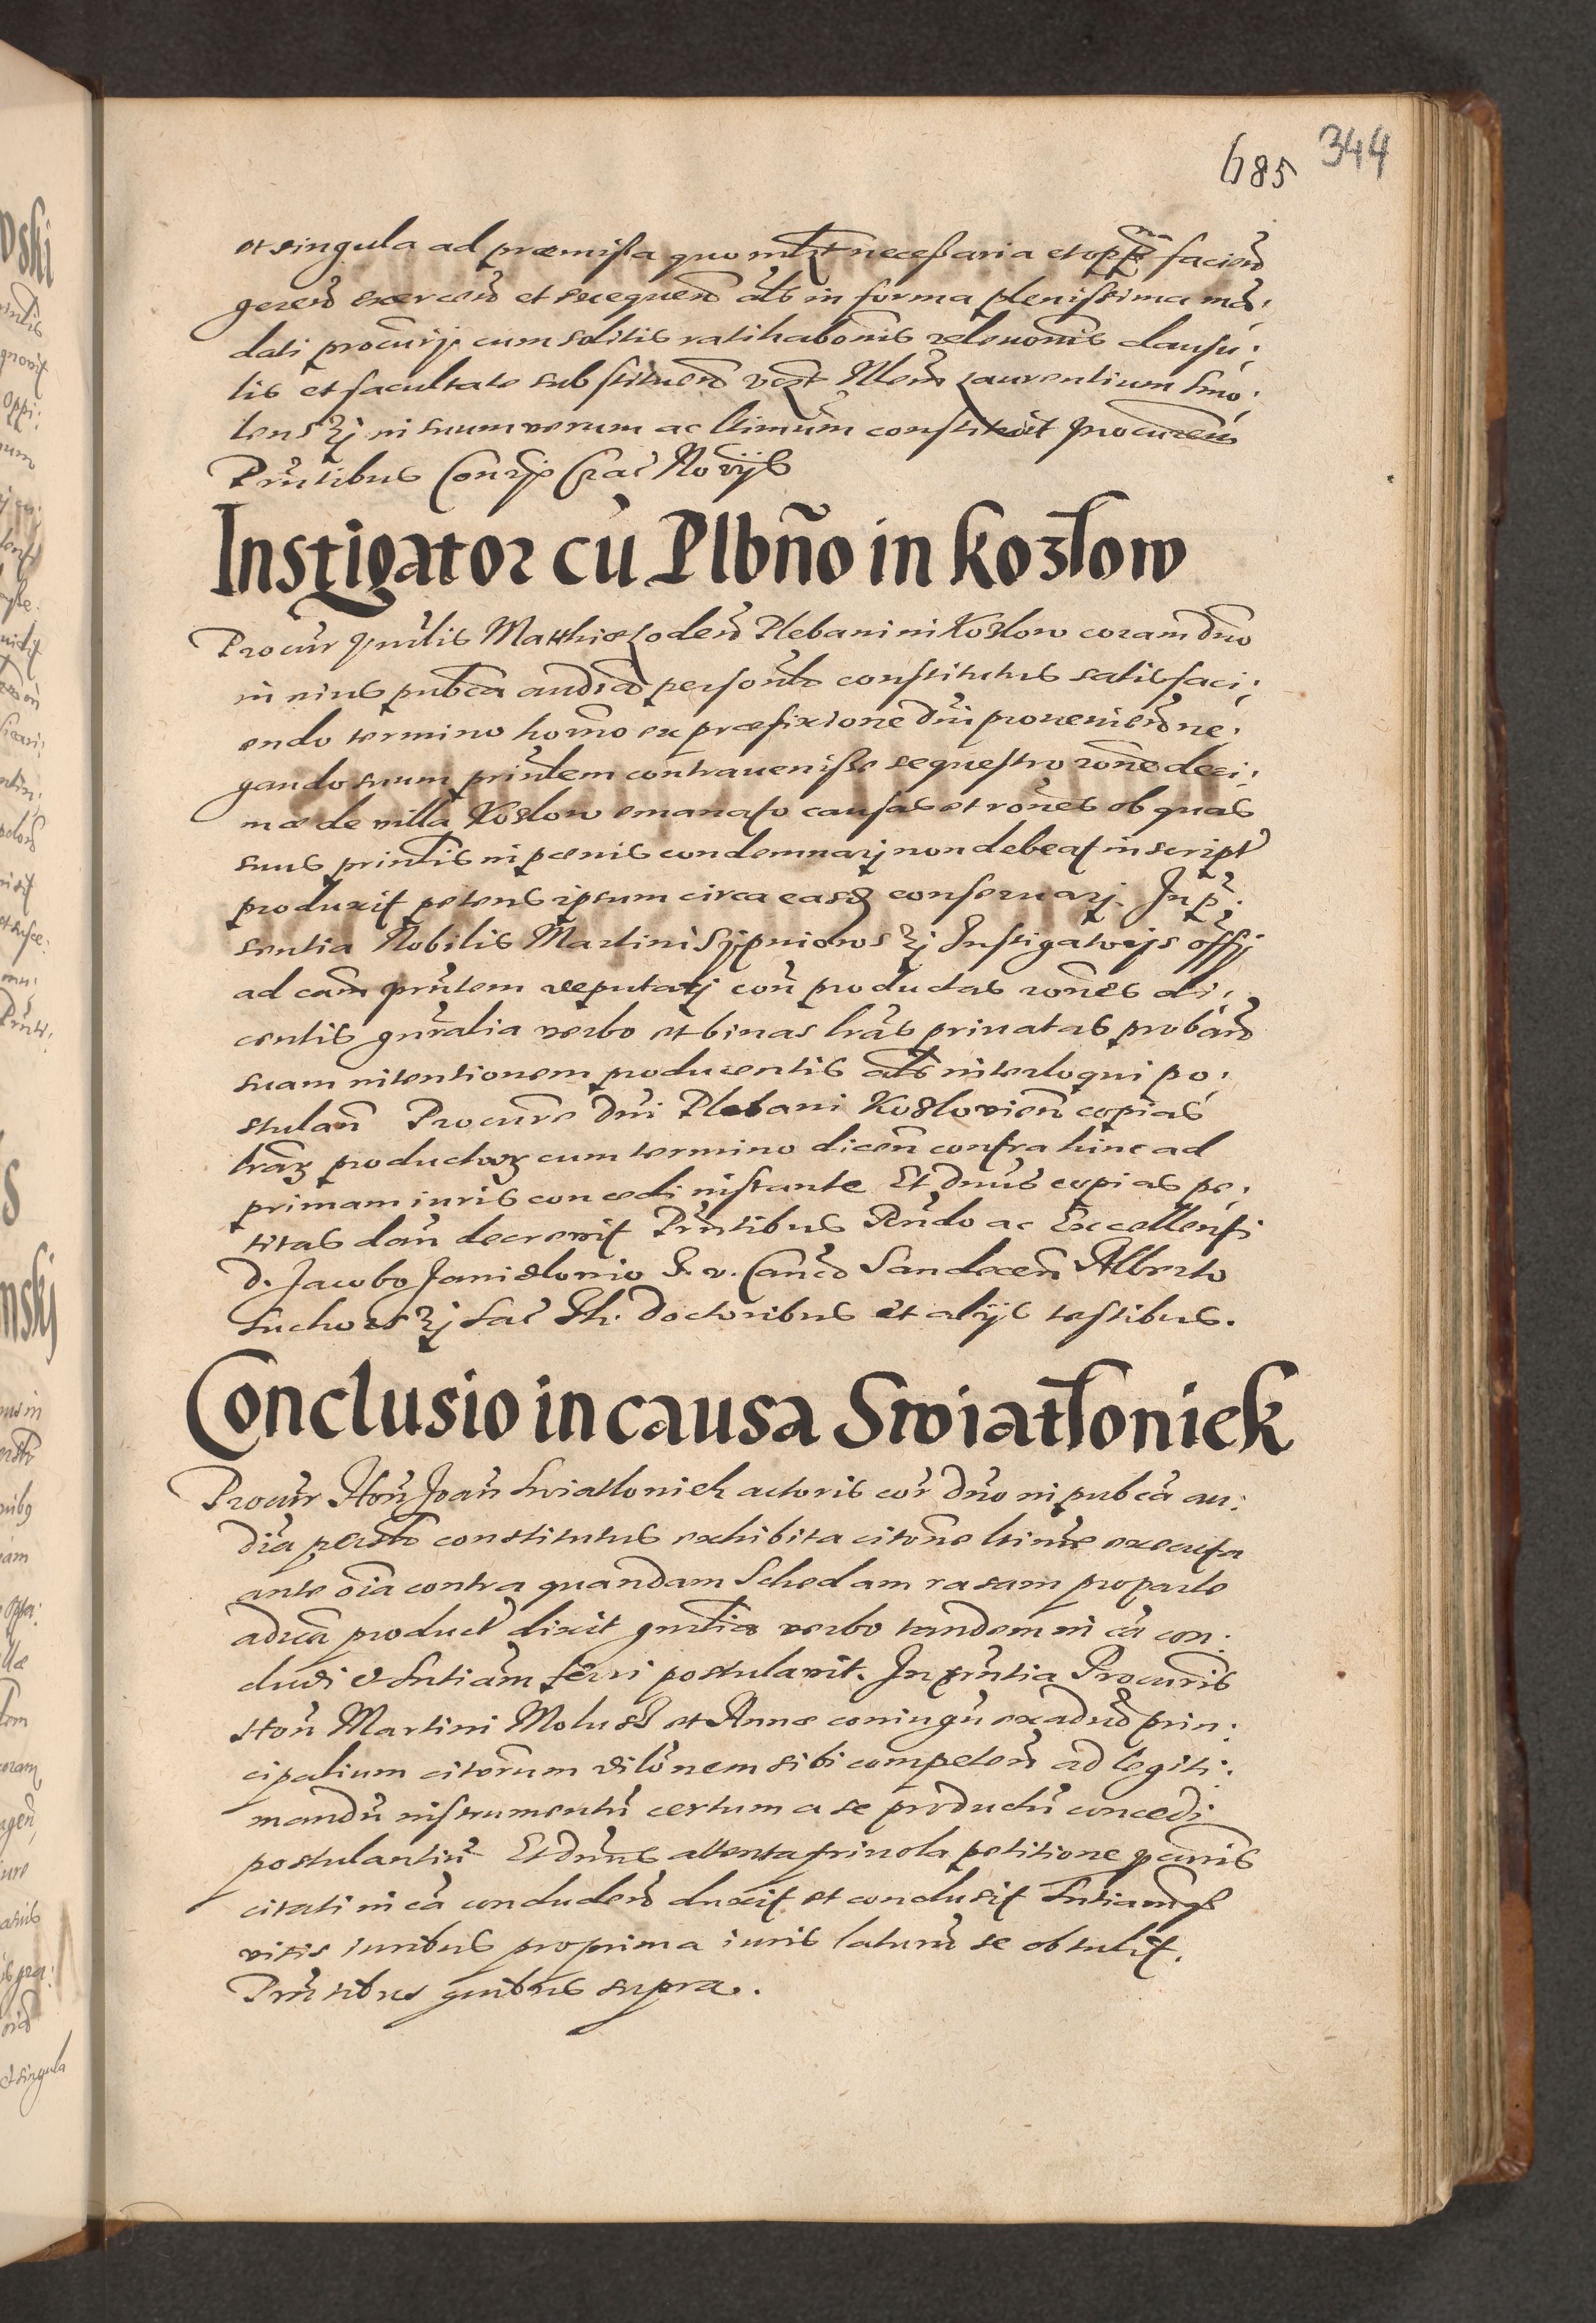 685 344
et singula ad præmissa quomlt necessaria et opp faciend
gerend exercend et exequend als in forma plenissima man:
dati procurij cum solitis ratihabonis releuonis clausu:
lis et facultate substituend vent Nlem Laurentium Smo:
lenskj in suum verum ac ltimum constituit procurem
Prntibus Consrij Crac Norijs
Instigator cu Plbno in kozłow
Procur prnlis Matthiæ Plebani in Kozlow coram dno
in eius pubca audia personlr constitutus satisfaci:
endo termino horno ex præfixione dni proueniend ne:
gando suum prinlem contrauenisse sequestro rone deci:
mæ de villa Kozlow emanato causas et rones ob quas
suus prinlis in pœnis condemnarj non debeat in script
produxit petens ipsum circa easd conseruarj. In p:
sentia Nobilis Martini Sijpniowskj Instigatoris offij
ad cam prntem reputatj con productas rones di:
centis gnralia verbo et binas lras priuatas proband
suam intentionem producentis als interloqui po:
stulan Procure dni Plebani Kozlovien copias
lrarum productarum cum termino dicen contra hinc ad
primam iuris concedi instante Et dnus copias pe:
titas dan decrevit Prntibus Rndo ac Excellenti
d. Jacobo Janidlovio I. v. Canco Sandecen Alberto
Suchorskj Sac Th. doctoribus et alijs testibus.
Conclusio in causa Swiatłoniek
Procur Hon Joan Swiatloniek actoris cor dno in pubca au:
dia persolr constitutus exhibita citone ltime executa
ante oia contra quandam Schedam rasam pro parte
adversa product dixit gnralia verbo tandem in ca con:
cludi et sntiam ferri postulavit. In prntia Procuris
Hon Martini et Annæ coniugu ex aduo prin:
cipalium citorum dilonem sibi competen ad legiti:
mandu instrumentu certum a se productu concedi
postulantiu Et dnus attenta friuola petitione pcuris
citati in ca concludend duxit et conclusit Sntiamque
visis iuribus pro prima iuris laturum se obtulit.
Prntibus quibus supra.